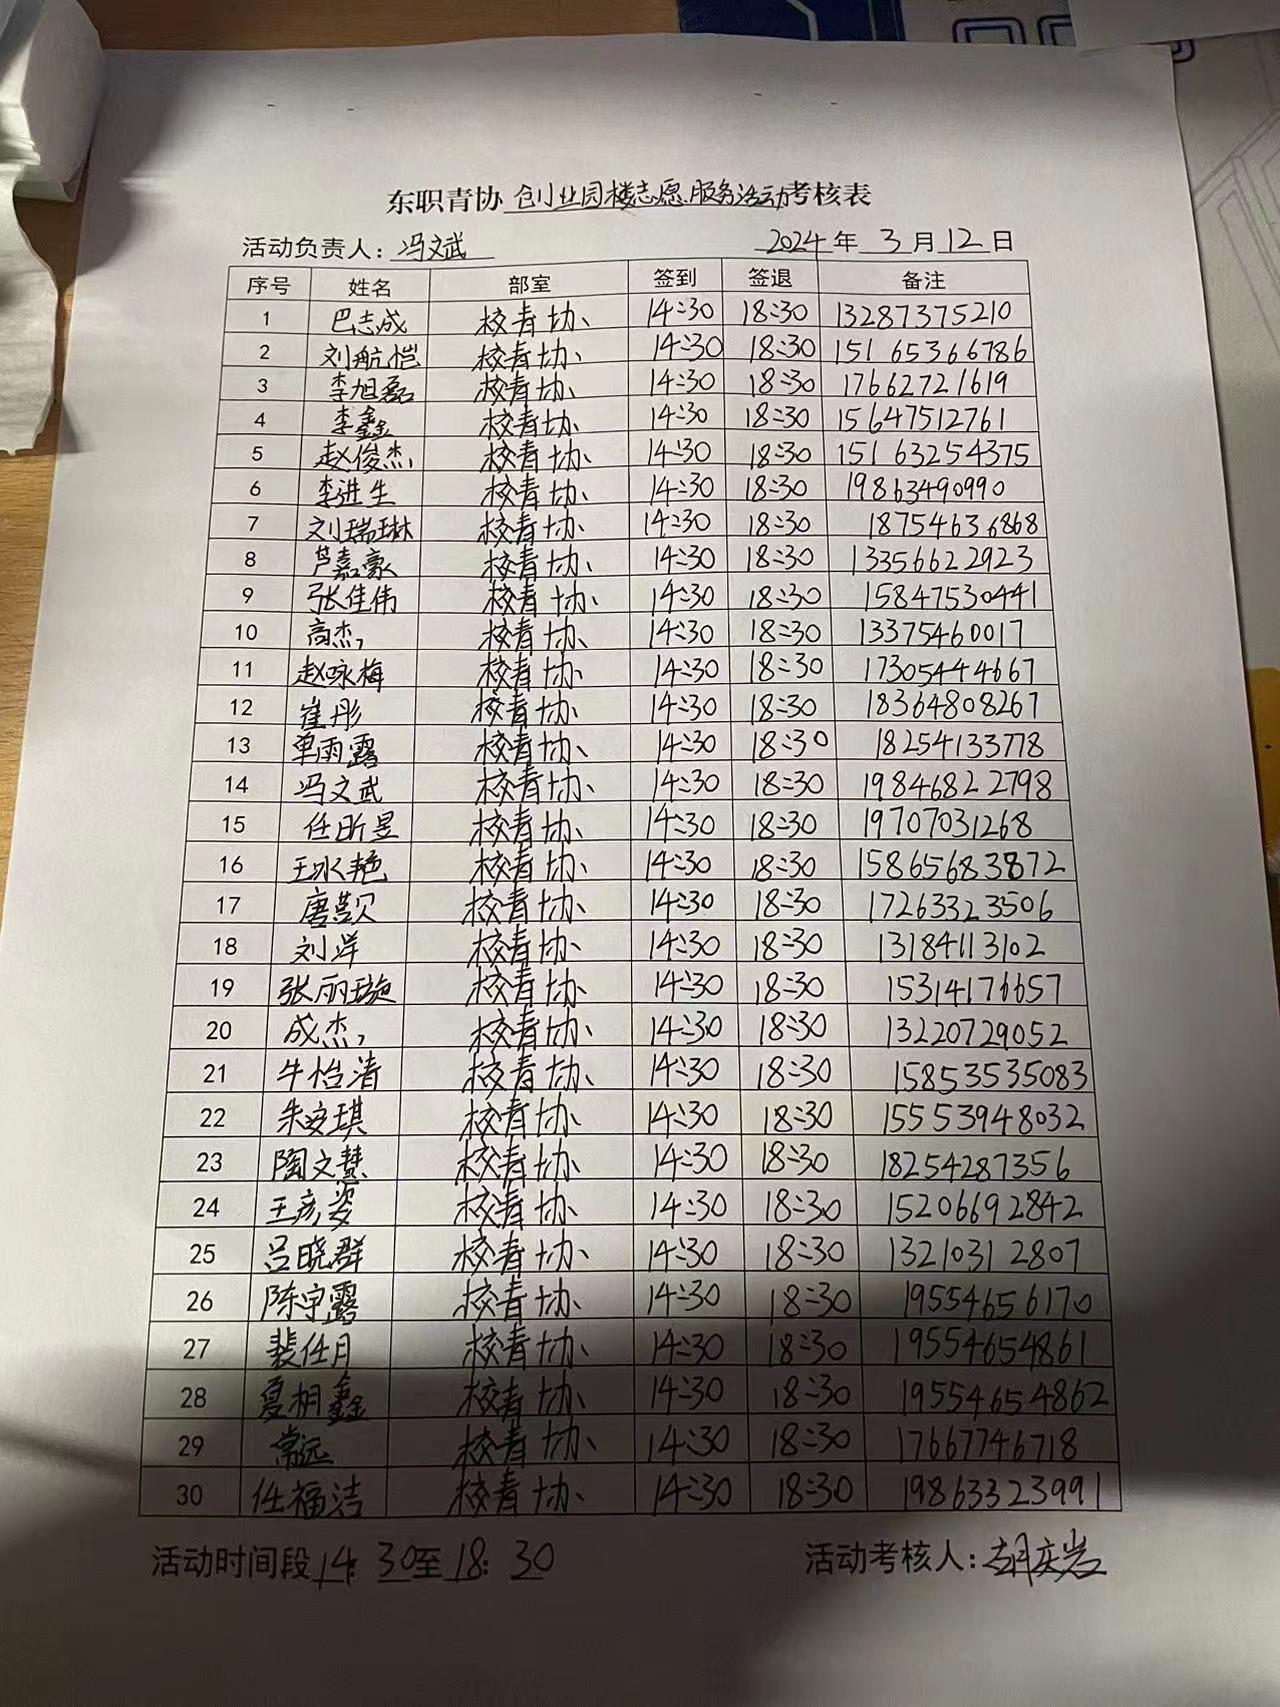 东职青协 创业园楼志愿服务活动考核表
活动负责人：冯文武 2024 年 3 月 12 日
序号 姓名 部室 签到 签退 备注
1 巴志成 校青协 14:30 18:30 13287375210
2 刘航恺 校青协 14:30 18:30 15165366786
3 李旭磊 校青协 14:30 18:30 17662721619
4 李鑫 校青协 14:30 18:30 15647512761
5 赵俊杰 校青协 14:30 18:30 15163254375
6 李进生 校青协 14:30 18:30 19863490990
7 刘瑞琳 校青协 14:30 18:30 18754636868
8 芦嘉豪 校青协 14:30 18:30 13356622923
9 张佳伟 校青协 14:30 18:30 15847530441
10 高杰 校青协 14:30 18:30 13375460017
11 赵咏梅 校青协 14:30 18:30 17305444667
12 崔彤 校青协 14:30 18:30 18364808267
13 单雨露 校青协 14:30 18:30 18254133778
14 冯文武 校青协 14:30 18:30 19846822798
15 任昕昱 校青协 14:30 18:30 19707031268
16 王冰艳 校青协 14:30 18:30 15865683872
17 唐 校青协 14:30 18:30 17263323506
18 刘洋 校青协 14:30 18:30 13184113102
19 张丽璇 校青协 14:30 18:30 15314176657
20 成杰 校青协 14:30 18:30 13220729052
21 牛怡清 校青协 14:30 18:30 15853535083
22 朱文琪 校青协 14:30 18:30 15553948032
23 陶文慧 校青协 14:30 18:30 18254287356
24 王彦姿 校青协 14:30 18:30 15206692842
25 吕晓群 校青协 14:30 18:30 13210312807
26 陈宇露 校青协 14:30 18:30 19554656170
27 裴任月 校青协 14:30 18:30 19554654861
28 夏相鑫 校青协 14:30 18:30 19554654862
29 常远 校青协 14:30 18:30 17667746718
30 任福洁 校青协 14:30 18:30 19863323991
活动时间段 14：30至18：30 活动考核人：胡庆岩